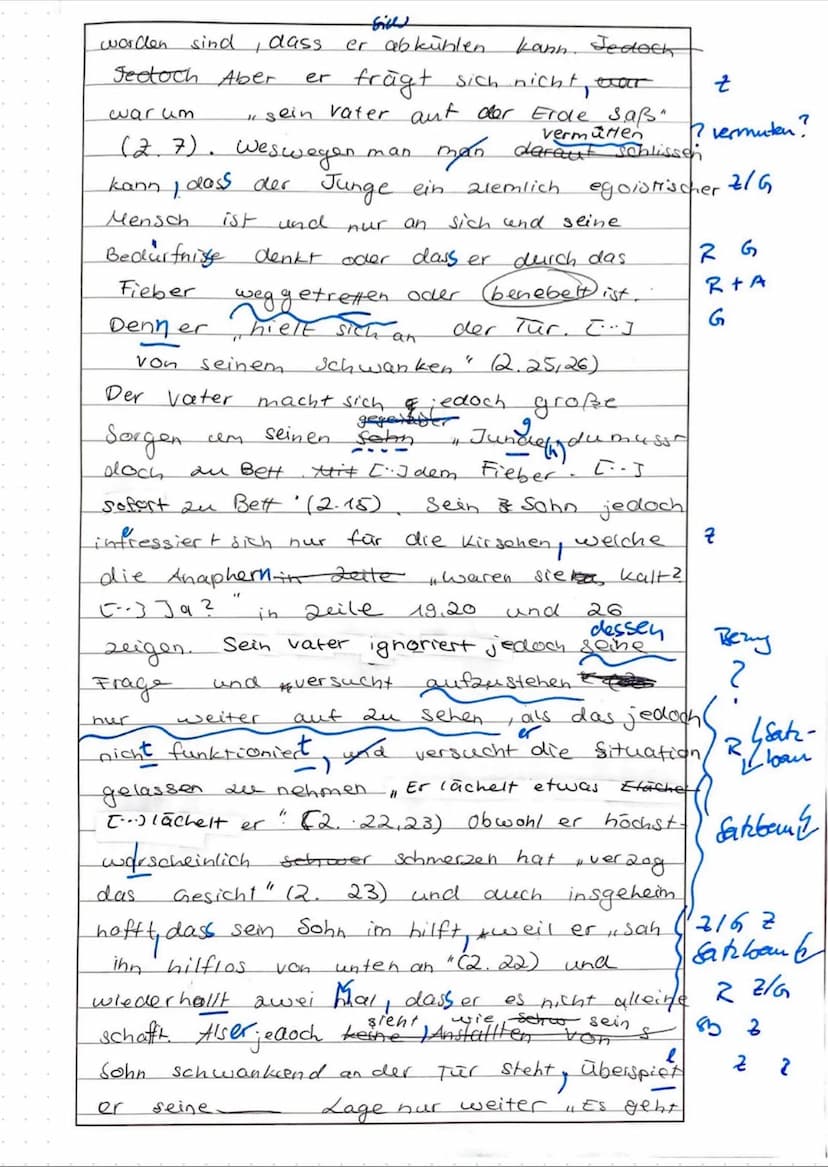 sich
worden sind, dass er abkühlen kann. Jedoch
Jedoch Aber er frägt sich nicht, war Z
warum „sein Vater auf der Erde saß"
vermuten ? vermuten?
(Z. 7). Weswegen man man daraut schlissen
kann, dass der Junge ein ziemlich egoistischer Z/G
Mensch ist und nur an sich und seine
Bedürfnisse denkt oder dass er durch das R G
Fieber weggetretten oder benebelt ist. R + A
Denn er „hielt sich an der Tür. [..] G
von seinem schwanken" (Z. 25,26)
Der Vater macht sich jedoch große
gegenüber g
Sorgen um seinen Sohn „Junde, (h) du musst
doch zu Bett. Mit [..] dem Fieber. [..]
sofort zu Bett" (Z.15). Sein Sohn jedoch
e
intressiert sich nur für die Kirschen, welche Z
die Anaphern in Zeile „waren sie, kalt?
[..] Ja?" in Zeile 19.20 und 26
dessen
zeigen. Sein Vater ignoriert jedoch seine Bezug
Frage und versucht aufzustehen ?
nur weiter auf zu sehen, als das jedoch
er Satz-
nicht funktioniert, und versucht die Situation R bau
gelassen zu nehmen „Er lächelt etwas Eläche
[..] lächelt er" (Z. 22,23) Obwohl er höchst- Satzbau
warscheinlich schwer schmerzen hat „verzog
das Gesicht" (Z. 23) und auch insgeheim
hofft, dass sein Sohn im hilft, weil er „sah Z/G Z
ihn hilflos von unten an" (Z. 22) und Satzbau
wiederhollt zwei Mal, dass er es nicht alleine R Z/G
sieht wie schw sein
schaft. Als er jedoch keine, Anstallten von s Sb Z
l
Sohn schwankend an der Tür steht, überspiet Z ?
er seine Lage nur weiter „Es geht